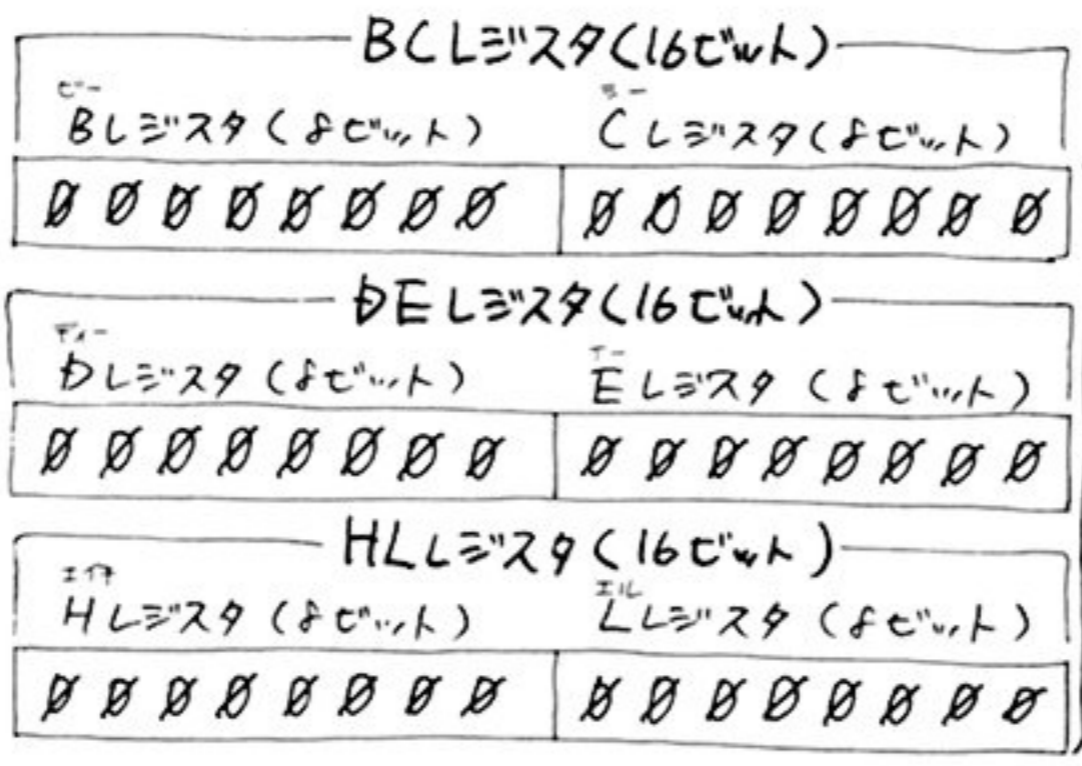 BCレジスタ(16ビット)
ビー シー
Bレジスタ(8ビット) Cレジスタ(8ビット)
0 0 0 0 0 0 0 0 0 0 0 0 0 0 0 0
DEレジスタ(16ビット)
ディー イー
Dレジスタ(8ビット) Eレジスタ(8ビット)
0 0 0 0 0 0 0 0 0 0 0 0 0 0 0 0
HLレジスタ(16ビット)
エイチ エル
Hレジスタ(8ビット) Lレジスタ(8ビット)
0 0 0 0 0 0 0 0 0 0 0 0 0 0 0 0